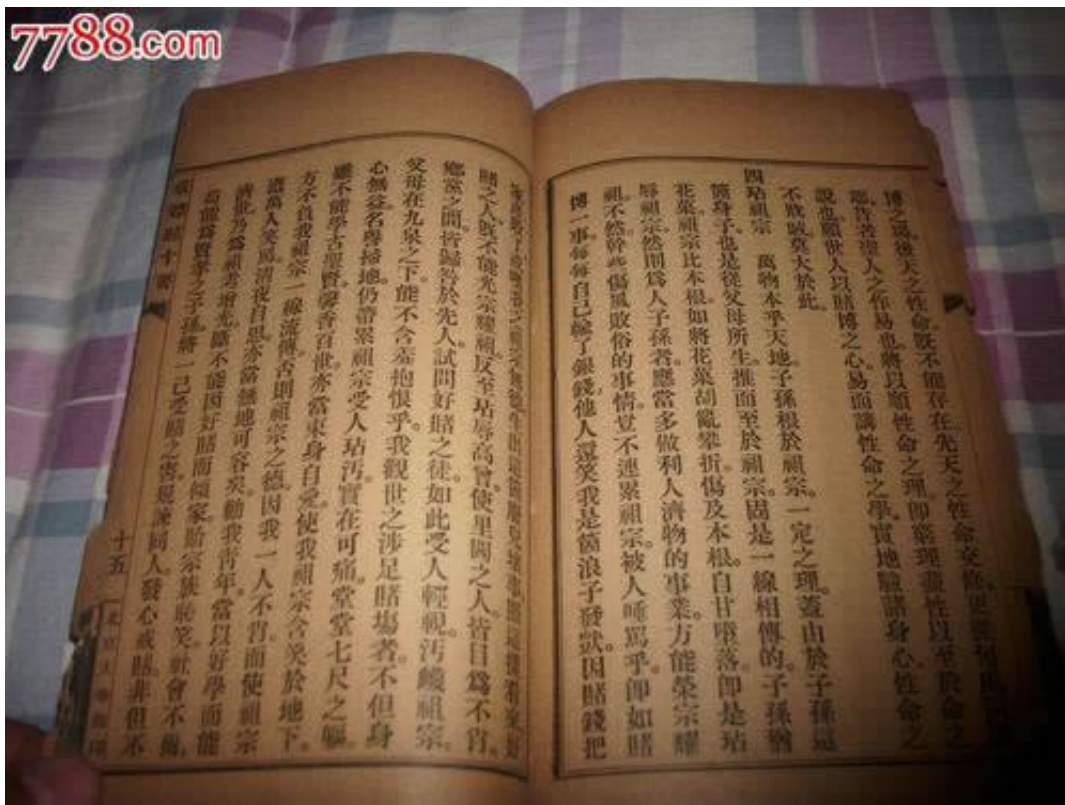 7788.com
博之場後天之性命既不能存在先天之性命
耶昔者聖人之作易也將以順性命之理即窮理盡性以至於命之
說也願世人以賭博之心易而講性命之學實地驗諸身心性命之
不戕賊莫大於此
四玷祖宗 萬物本乎天地子孫根於祖宗。一定之理。蓋由於子孫這
箇身子。也是從父母所生。推而至於祖宗。固是一線相傳的。子孫猶
花菓。祖宗比本根。如將花菓胡亂攀折。傷及本根。自甘墮落。即是玷
辱祖宗。然則為人子孫者。應當多做利人濟物的事業。方能榮宗耀
祖。不然。幹些傷風敗俗的事情。豈不連累祖宗。被人唾罵乎。即如賭
博一事。每每自己輸了銀錢。他人還笑我是箇浪子發獃。因賭錢把
賭之人。既不能光宗耀祖。反至玷辱高曾。使里閭之人。皆目為不肖。
鄉黨之間。皆歸咎於先人。試問好賭之徒。如此受人輕視。汚衊祖宗。
父母在九泉之下。能不含羞抱恨乎。我觀世之涉足賭場者。不但身
心無益。名譽掃地。仍帶累祖宗。受人玷汚。實在可痛。堂堂七尺之軀。
雖不能學古聖賢。馨香百世。亦當束身自愛。使我祖宗含笑於地下。
方不負我祖宗一線流傳。否則祖宗之德。因我一人不肖。而使祖宗
遭萬人笑罵。清夜自思。亦當無地可容矣。勸我青年。當以好學而能
濟世。乃為祖考增光。斷不能因好賭而傾家。貽宗族恥笑。社會不齒。
苟能為賢孝之子孫。將一己受賭之害。規諫同人。發心戒賭。非但不
十五